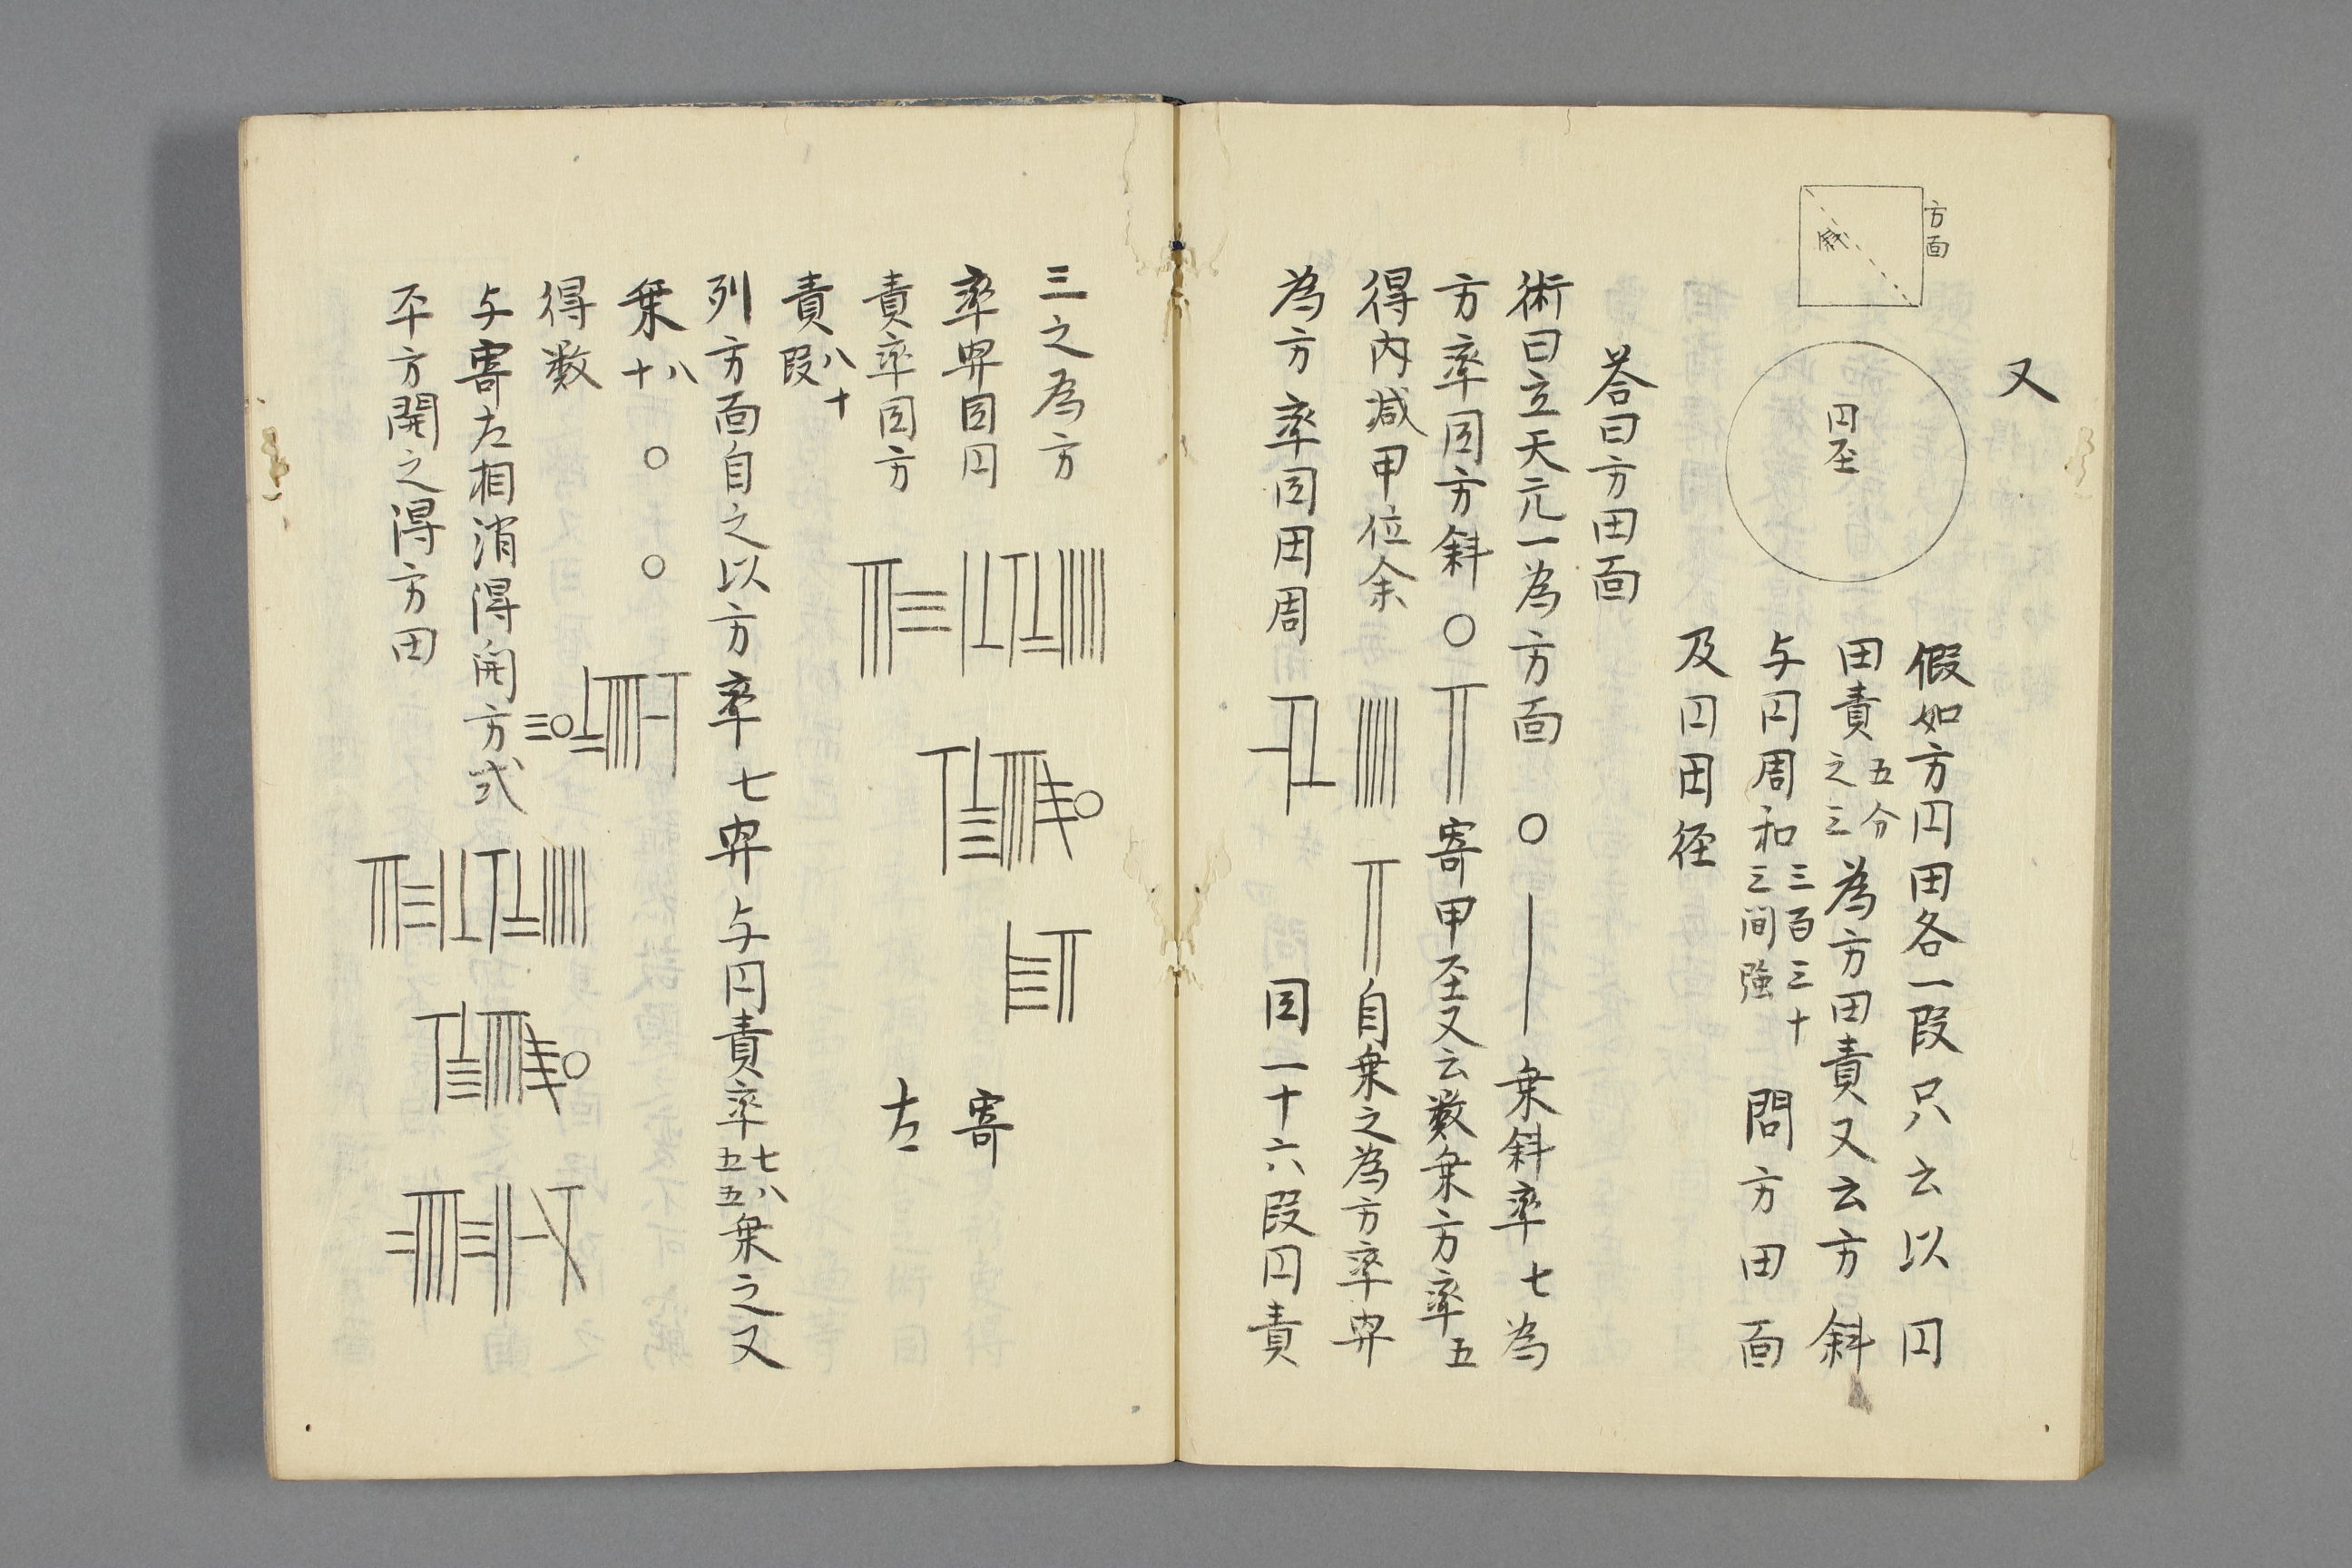 又
方面
斜
円至
假如方円田各一段只云以円
田責五分之三為方田責又云方斜
与円周和三百三十三间強 問方田面
及円田径
荅曰方田面
術曰立天元一為方面〇〡乗斜率七為
方率因方斜〇〧寄甲至又云数乗方率五
得内減甲位余 自乗之為方率冪
為方率因田周 因一十六段円責
三之為方
率冪因円
責率因方
責八十段
寄
左
列方面自之以方率七冪与円責率七八五五乗之又
乗八十〇〇
得数
与寄左相消得開方式
平方開之得方田